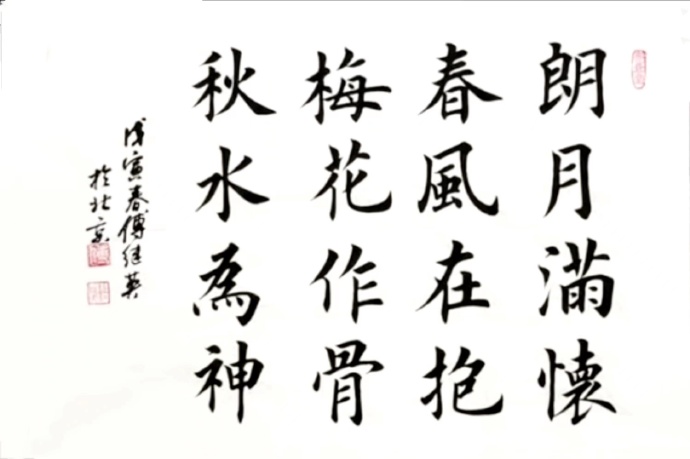 朗月满懷
春風在抱
梅花作骨
秋水為神
戊寅春傅继英
於北京